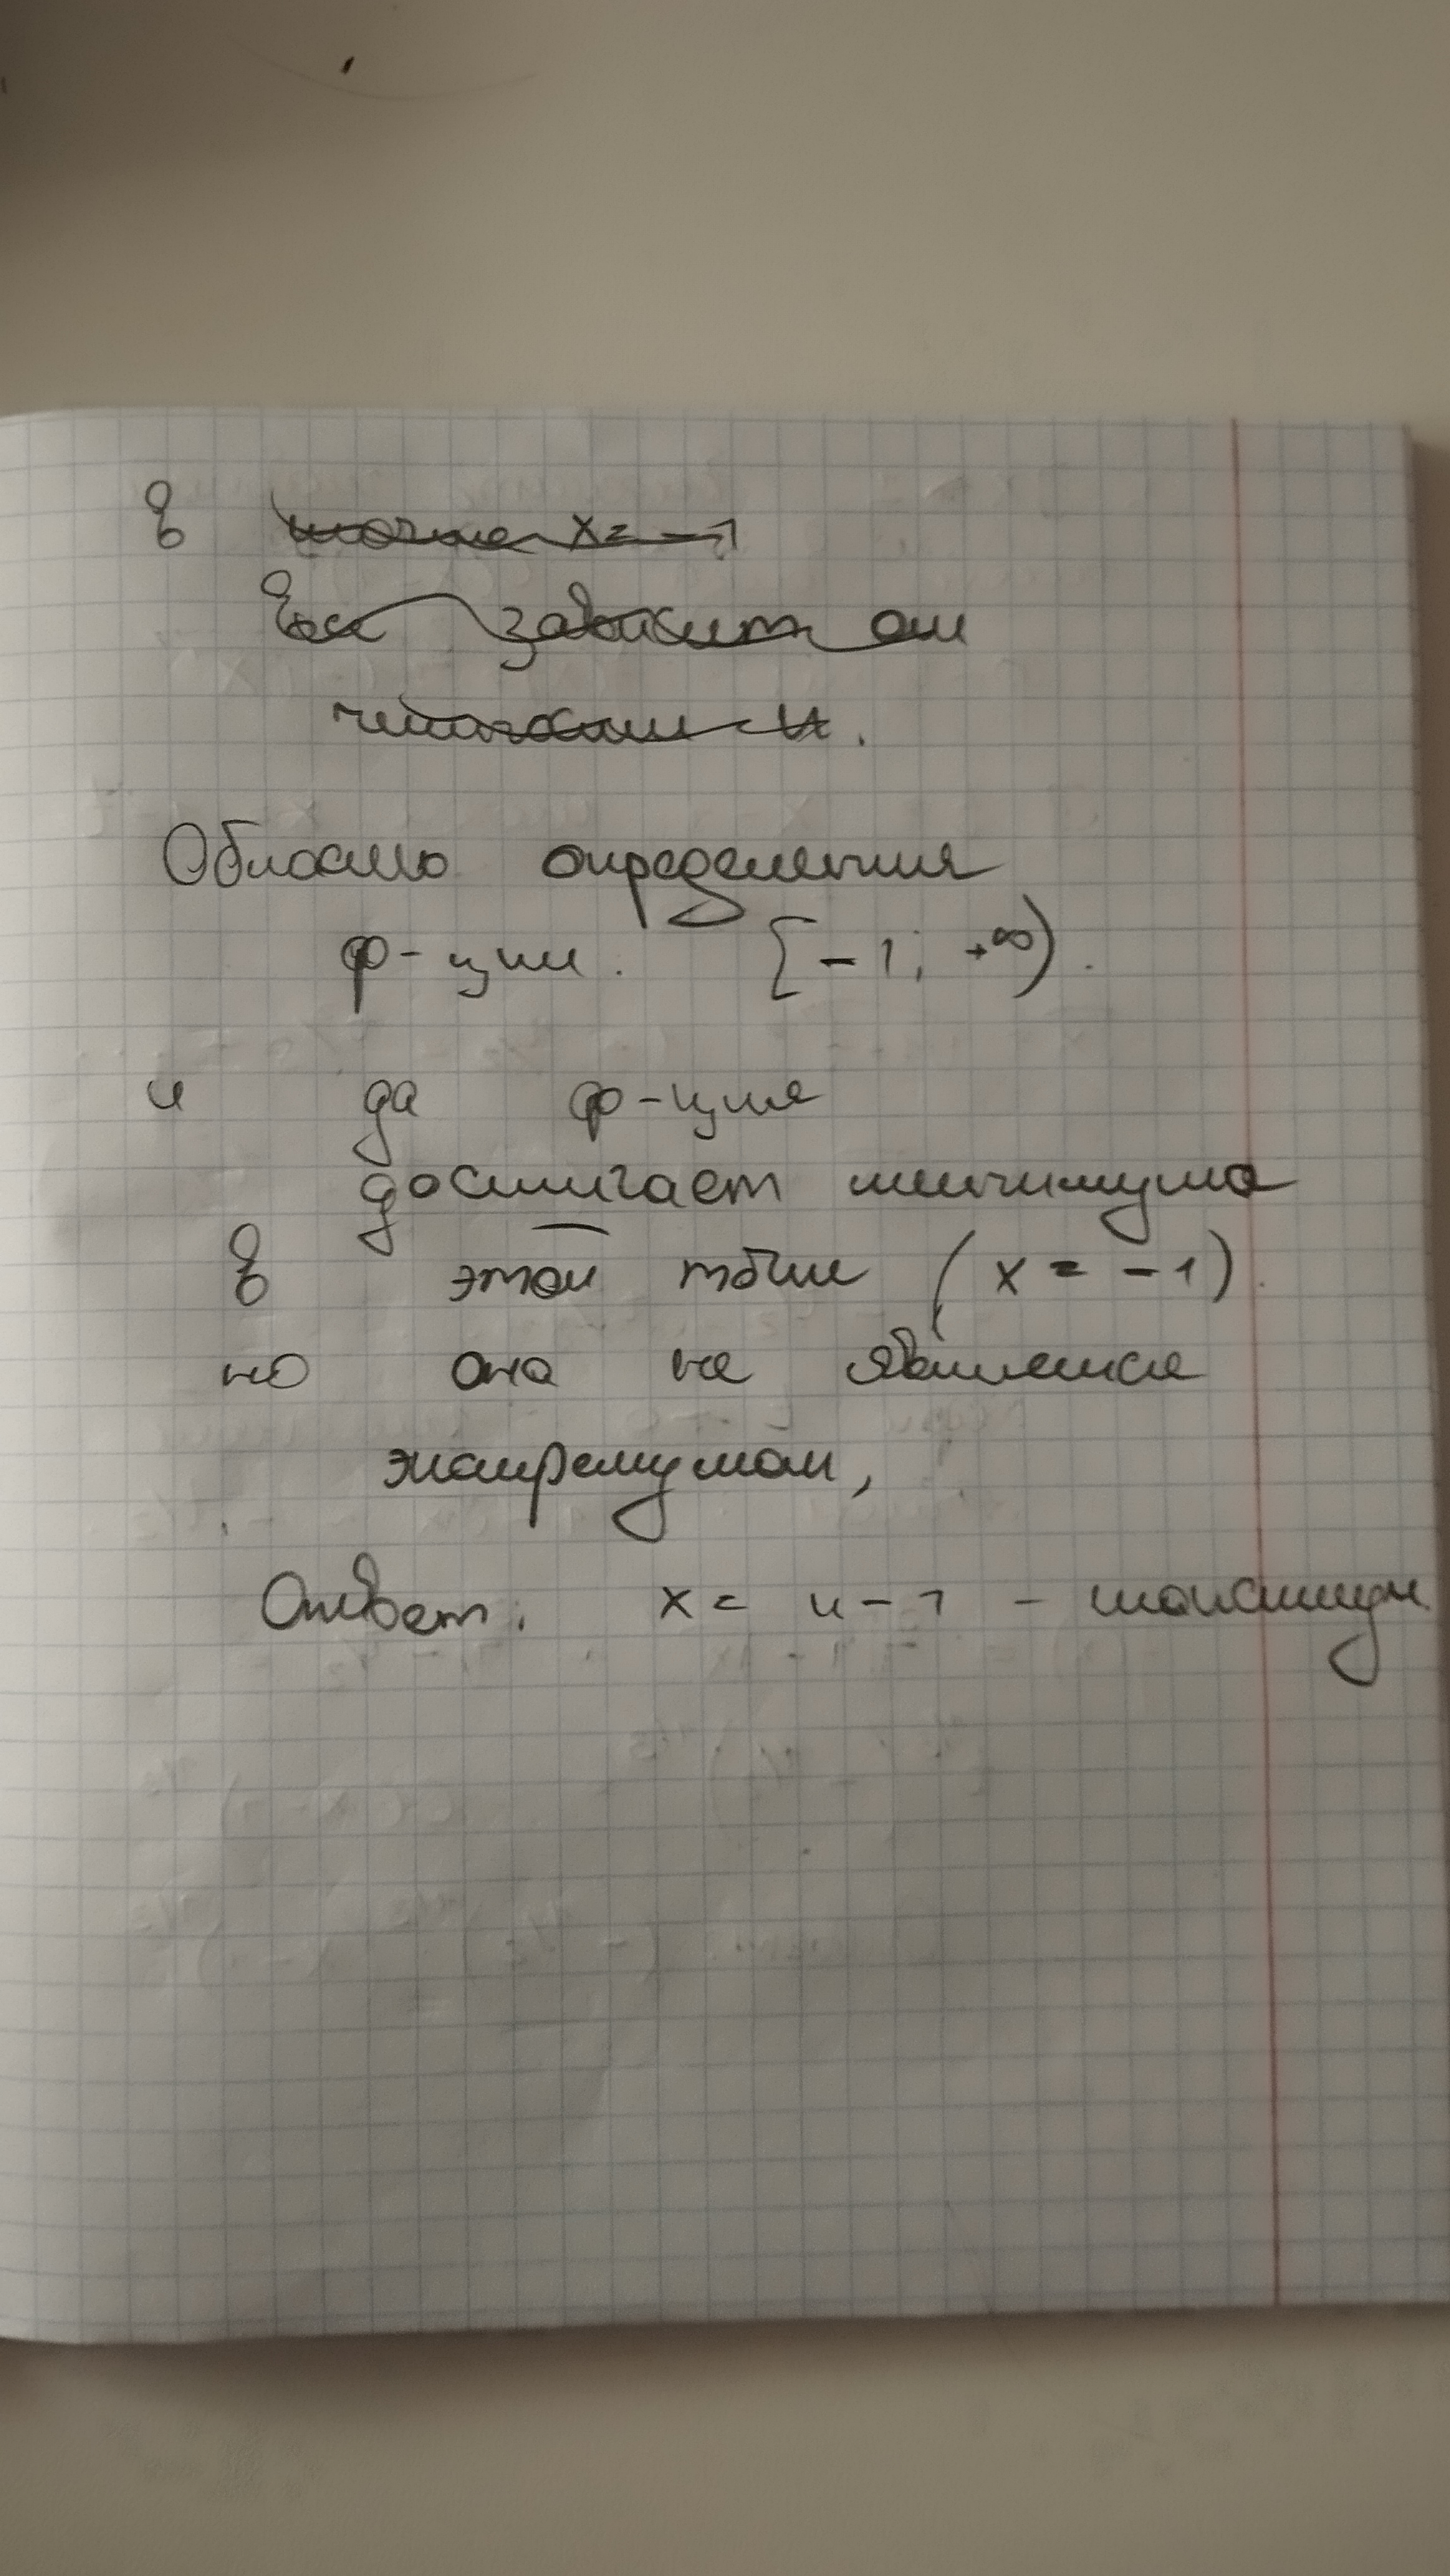 в точке x = -1
Все зависит от
четности n.
Область определения
ф-ции. [-1; +∞).
и да ф-ция
достигает минимума
в этой точке (x = -1).
но она не является
экстремумом,
Ответ: x = n - 1 - максимум